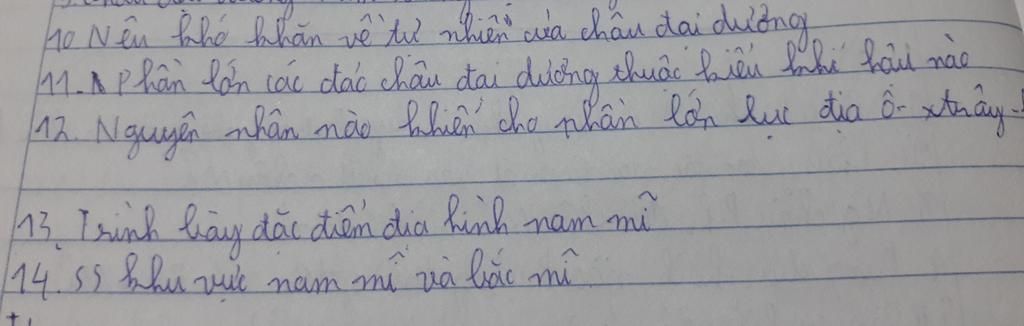 10. Nêu khó khăn về tự nhiên của châu đai dương
11. Phần lớn các đảc châu đai dương thuộc kiểu khí hậu nào
12. Nguyên nhân nào khiến cho phần lớn lục địa ô-xtrây-
13. Trình bày đăc điểm địa hình nam mĩ
14. SS khu vực nam mĩ và bắc mĩ